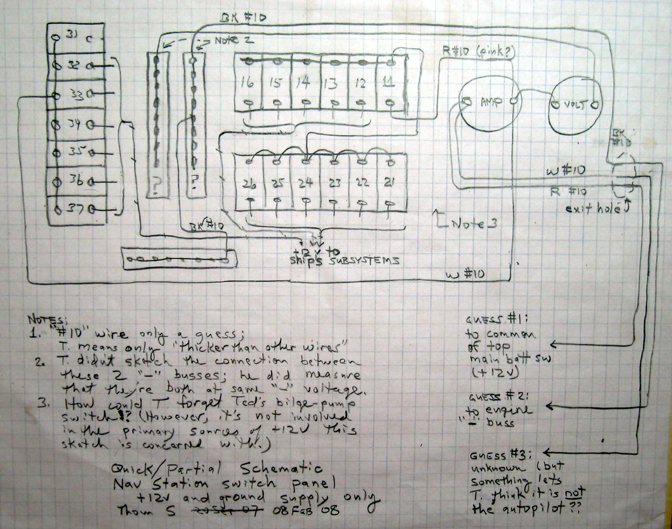 BK #10
Note 2
31
32
33
34
35
36
37
?
?
16 15 14 13 12 11
R #10 (pink?)
AMP
VOLT
BK
#10
W #10
R #10
exit hole
26 25 24 23 22 21
BK #10
Note 3
+12 V to
ship's SUBSYSTEMS
W #10
NOTES:
1. "#10" wire only a guess;
T. means only "thicker than other wires"
2. T. didn't sketch the connection between
these 2 "-" busses; he did measure
that they're both at same "-" voltage.
3. How could T forget Ted's bilge-pump
switch!? (However, it's not involved
in the primary sources of +12V this
sketch is concerned with.)
Quick/Partial Schematic
Nav Station switch panel
+12V and ground supply only
Thom S 08 Feb '08
GUESS #1:
to common
of top
main batt sw
(+12V)
GUESS #2:
to engine
"-" buss
GUESS #3:
unknown (but
something lets
T. think it is not
the autopilot??